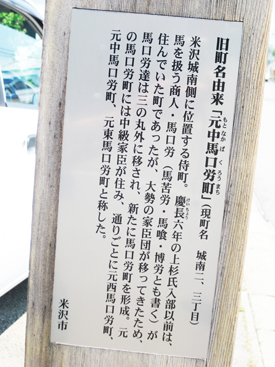 旧町名由来「元中馬口労町」(現町名 城南二、三丁目)
もとなかばくろうまち
米沢城南側に位置する侍町。慶長六年の上杉氏入部以前は、
けいちょう
馬を扱う商人・馬口労(馬苦労・馬喰・博労とも書く)が
住んでいた町であったが、大勢の家臣団が移ってきたため、
馬口労達は三の丸外に移され、新たに馬口労町を形成。元
の馬口労町には中級家臣が住み、通りごとに元西馬口労町、
元中馬口労町、元東馬口労町と称した。
米沢市